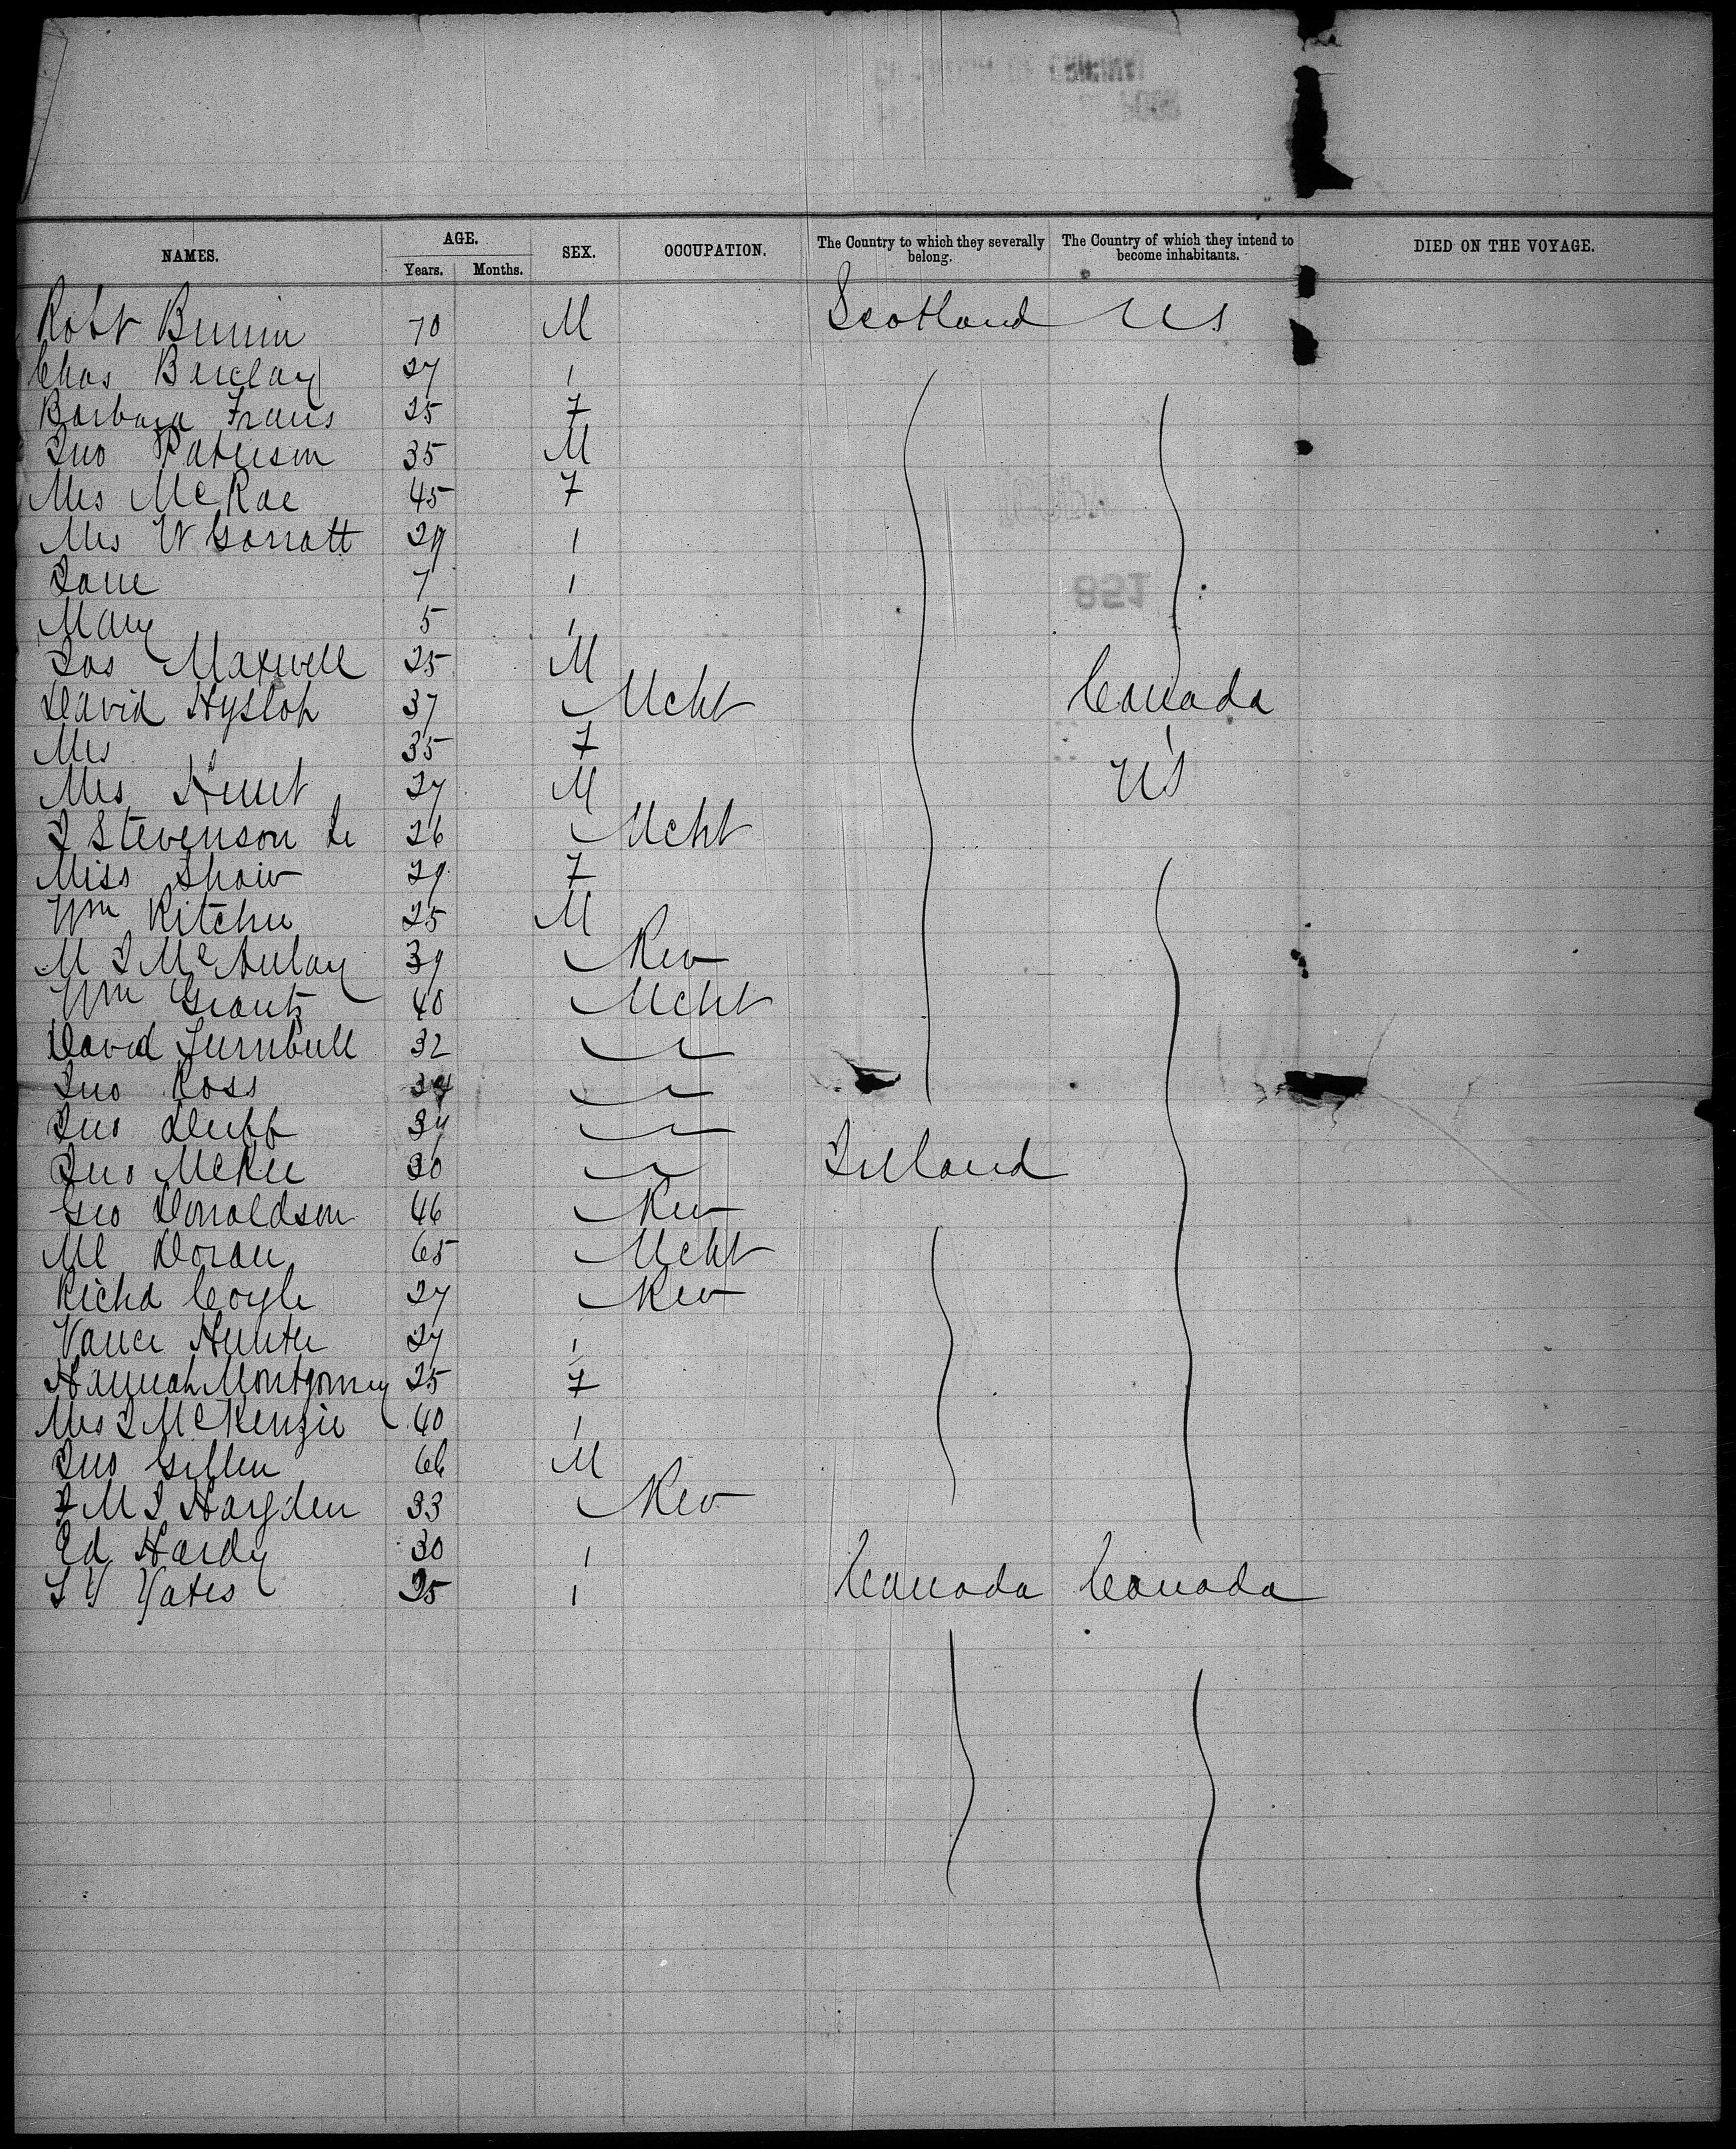 NAMES. AGE. SEX. OCCUPATION. The Country to which they severally belong. The Country of which they intend to become inhabitants. DIED ON THE VOYAGE.
Years. Months.
Robt 70 M Scotland US
Chas Barclay 27 1
Barbara 25 F
Jno Paterson 35 M
Mrs McRae 45 F
Mrs W Garratt 29 1
Jane 7 1
Mary 5 1
Jas Maxwell 25 M
David Hyslop 37 Mcht Canada
Mrs 35 F
Mrs 27 M US
J Stevenson Jr 26 Mcht
Miss Shaw 29 F
Wm Ritchie 25 M
M J McAulay 39 Rev
Wm Grant 40 Mcht
David Turnbull 32
Jno Ross
Jno Duff 34
Jno McKee 30 Ireland
Geo Donaldson 46 Rev
Ml Doran 65 Mcht
Richd Coyle 27 Rev
Vance Hunter 27 1
Hannah Montgomery 25 F
Mrs J McKenzie 40 1
Jno Gillen 66 M
J M J Hayden 33 Rev
Ed Hardy 30 1
Yates 25 1 Canada Canada
851